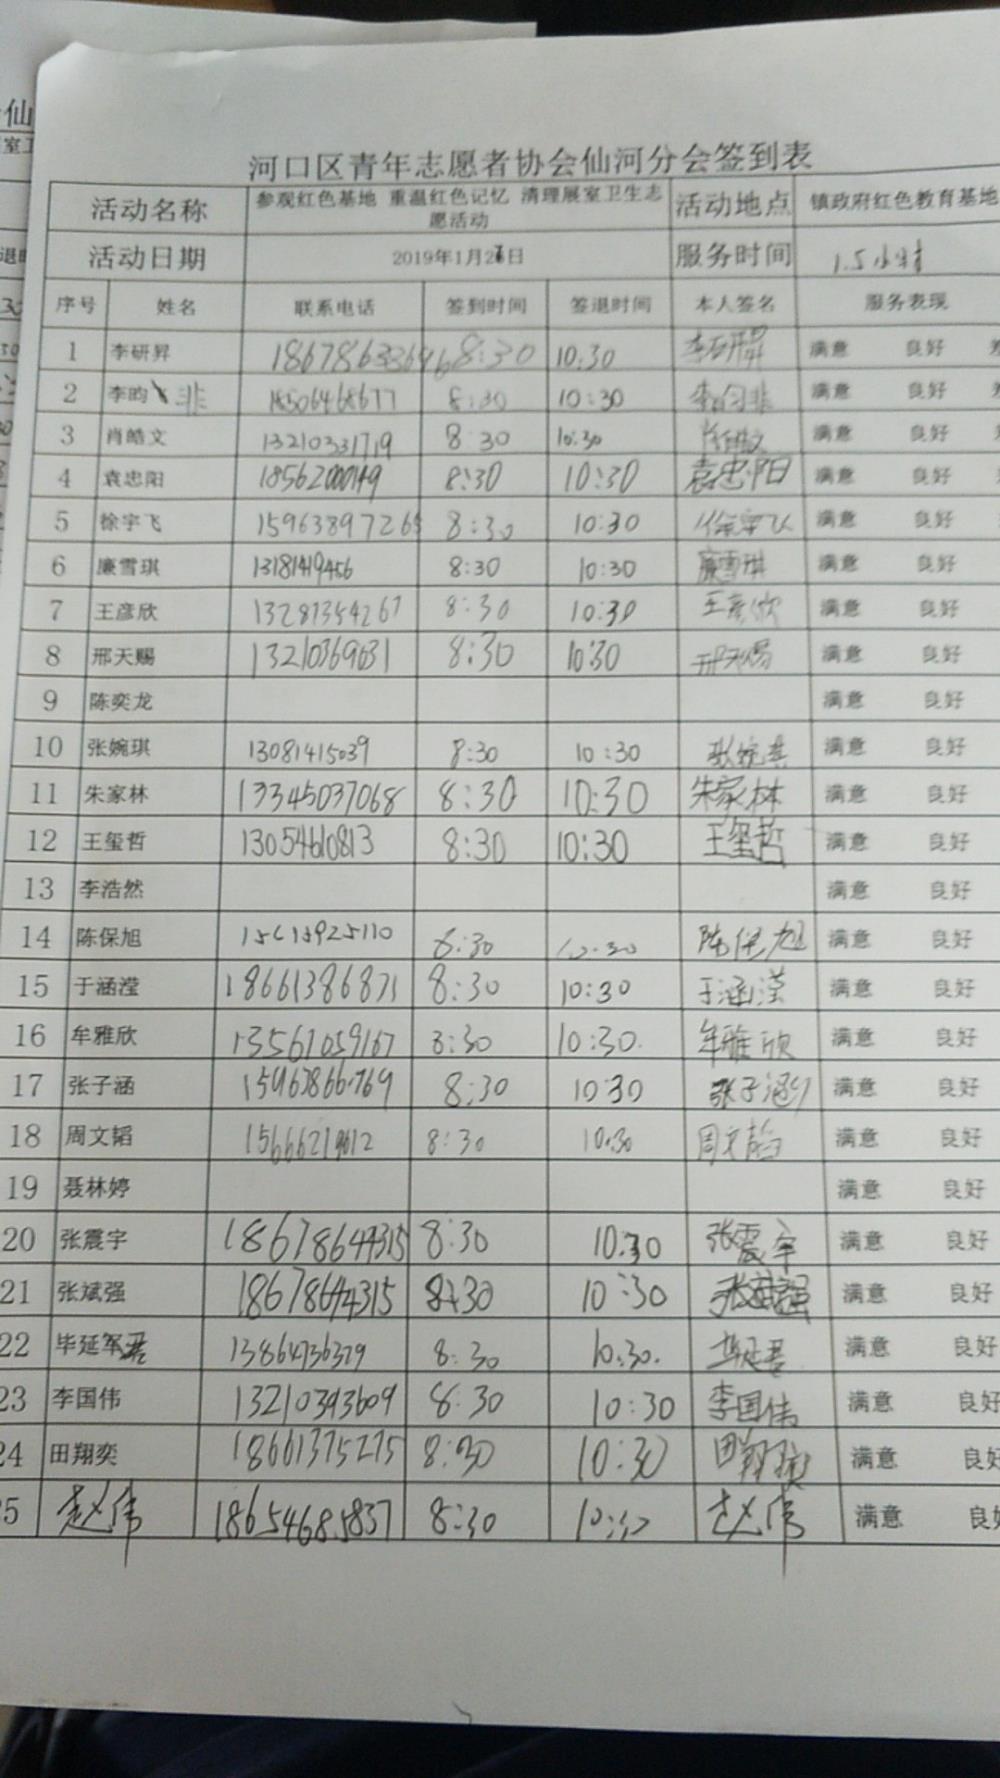 河口区青年志愿者协会仙河分会签到表
活动名称 参观红色基地 重温红色记忆 清理展室卫生志愿活动 活动地点 镇政府红色教育基地
活动日期 2019年1月2日 服务时间 1.5小时
序号 姓名 联系电话 签到时间 签退时间 本人签名 服务表现
1 李研昇 8:30 10:30 李研昇 满意 良好
2 李昀非 18506468677 8:30 10:30 李昀非 满意 良好
3 肖皓文 13210331719 8:30 10:30 肖皓文 满意 良好
4 袁忠阳 18562000149 8:30 10:30 袁忠阳 满意 良好
5 徐宇飞 15963897265 8:30 10:30 徐宇飞 满意 良好
6 廉雪琪 13181419456 8:30 10:30 廉雪琪 满意 良好
7 王彦欣 13281354267 8:30 10:30 王彦欣 满意 良好
8 邢天赐 13210369631 8:30 10:30 邢天赐 满意 良好
9 陈奕龙 满意 良好
10 张婉琪 13081415039 8:30 10:30 张婉琪 满意 良好
11 朱家林 13345037068 8:30 10:30 朱家林 满意 良好
12 王玺哲 13054610813 8:30 10:30 王玺哲 满意 良好
13 李浩然 满意 良好
14 陈保旭 8:30 10:30 陈保旭 满意 良好
15 于涵滢 18661386871 8:30 10:30 于涵滢 满意 良好
16 牟雅欣 13561059167 8:30 10:30. 牟雅欣 满意 良好
17 张子涵 8:30 10:30 张子涵 满意 良好
18 周文韬 8:30 10:30 周文韬 满意 良好
19 聂林婷 满意 良好
20 张震宇 18678644315 8:30 10:30 张震宇 满意 良好
21 张斌强 18678644315 8:30 10:30 张斌强 满意 良好
22 毕延君 13864736379 8:30 10:30. 毕延君 满意 良好
23 李国伟 13210393609 8:30 10:30 李国伟 满意 良好
24 田翔奕 18661375275 8:30 10:30 田翔奕 满意 良好
5 赵伟 18654685837 8:30 10:30 赵伟 满意 良好